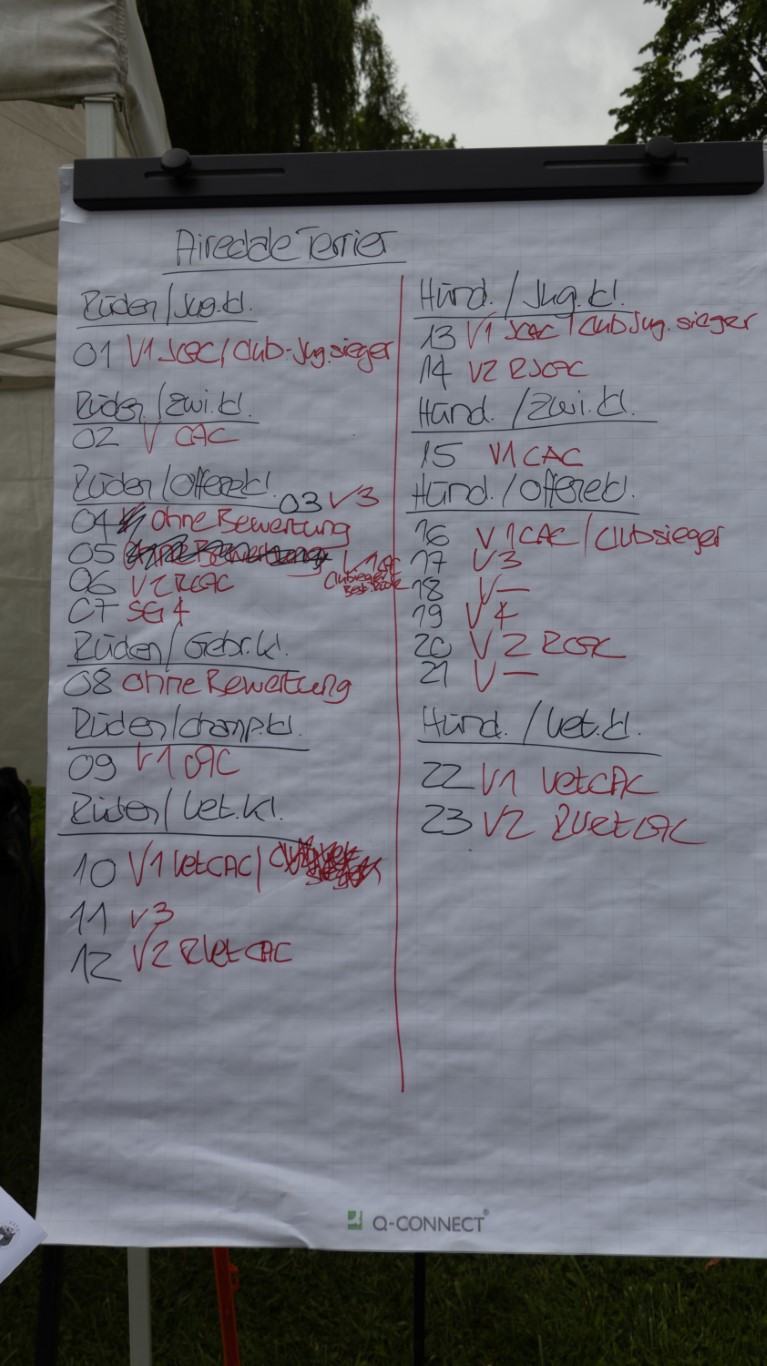 Airedale Terrier
Rüden/Jug.kl.
01 V1 JCAC/Club-Jug.sieger
Rüden/Zwi.kl.
02 V CAC
Rüden/Offenekl.
03 V3
04 Ohne Bewertung
05 V1 CAC
Clubsieger
Best. Rüde
06 V2 RCAC
07 SG 4
Rüden/Gebr.kl.
08 ohne Bewertung
Rüden/Champ.kl.
09 V1 CAC
Rüden/Vet.kl.
10 V1 VetCAC/
11 V3
12 V2 RVetCAC
Hünd./Jug.kl.
13 V1 JCAC/ClubJug.sieger
14 V2 RJCAC
Hünd./Zwi.kl.
15 V1 CAC
Hünd./Offenekl.
16 V1 CAC/Clubsieger
17 V3
18 V—
19 V4
20 V2 RCAC
21 V—
Hünd./Vet.kl.
22 V1 VetCAC
23 V2 RVetCAC
Q-CONNECT®